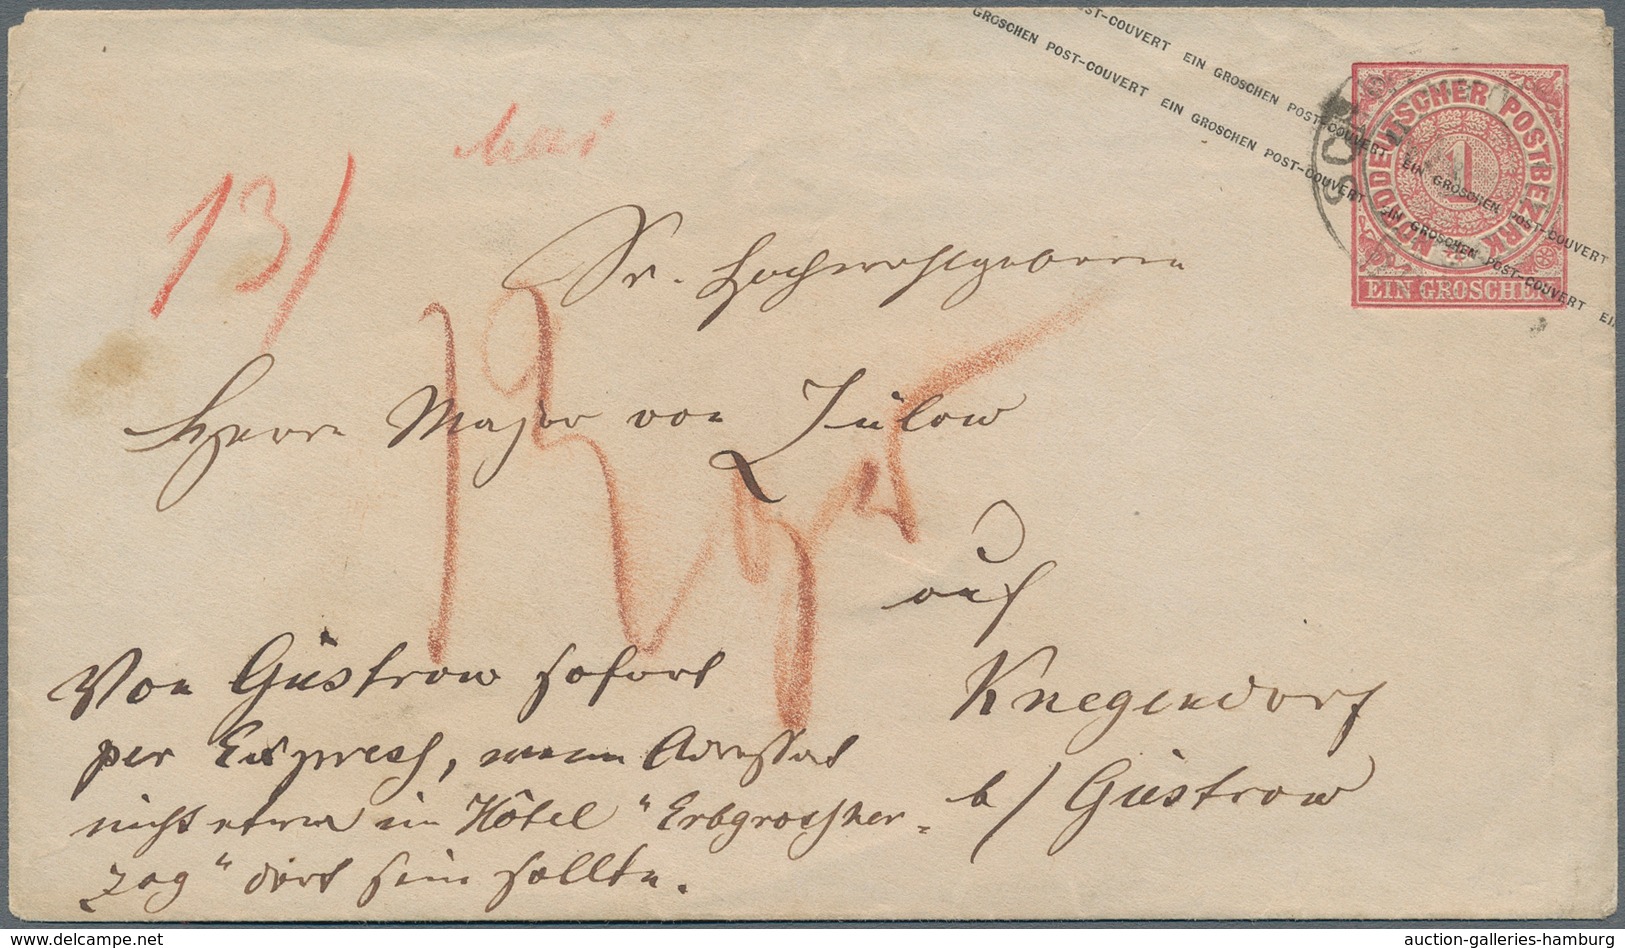 GROSCHEN POST-COUVERT EIN GROSCHEN POST-COUVERT EIN GROSCHEN POST-COUVERT
ST-COUVERT EIN GROSCHEN POST-COUVERT EIN GROSCHEN POST-COUVERT
NORDDEUTSCHER POSTBEZIRK
1
EIN GROSCHEN
13/
Sr. Hochwohlgeboren
Herrn Major von Zülow
auf
Knegendorf
b/ Güstrow
Von Güstrow sofort
per Express, wenn Adressat
nicht etwa im Hôtel "Erbgrossher-
zog" dort sein sollte.
auction-galleries-hamburg